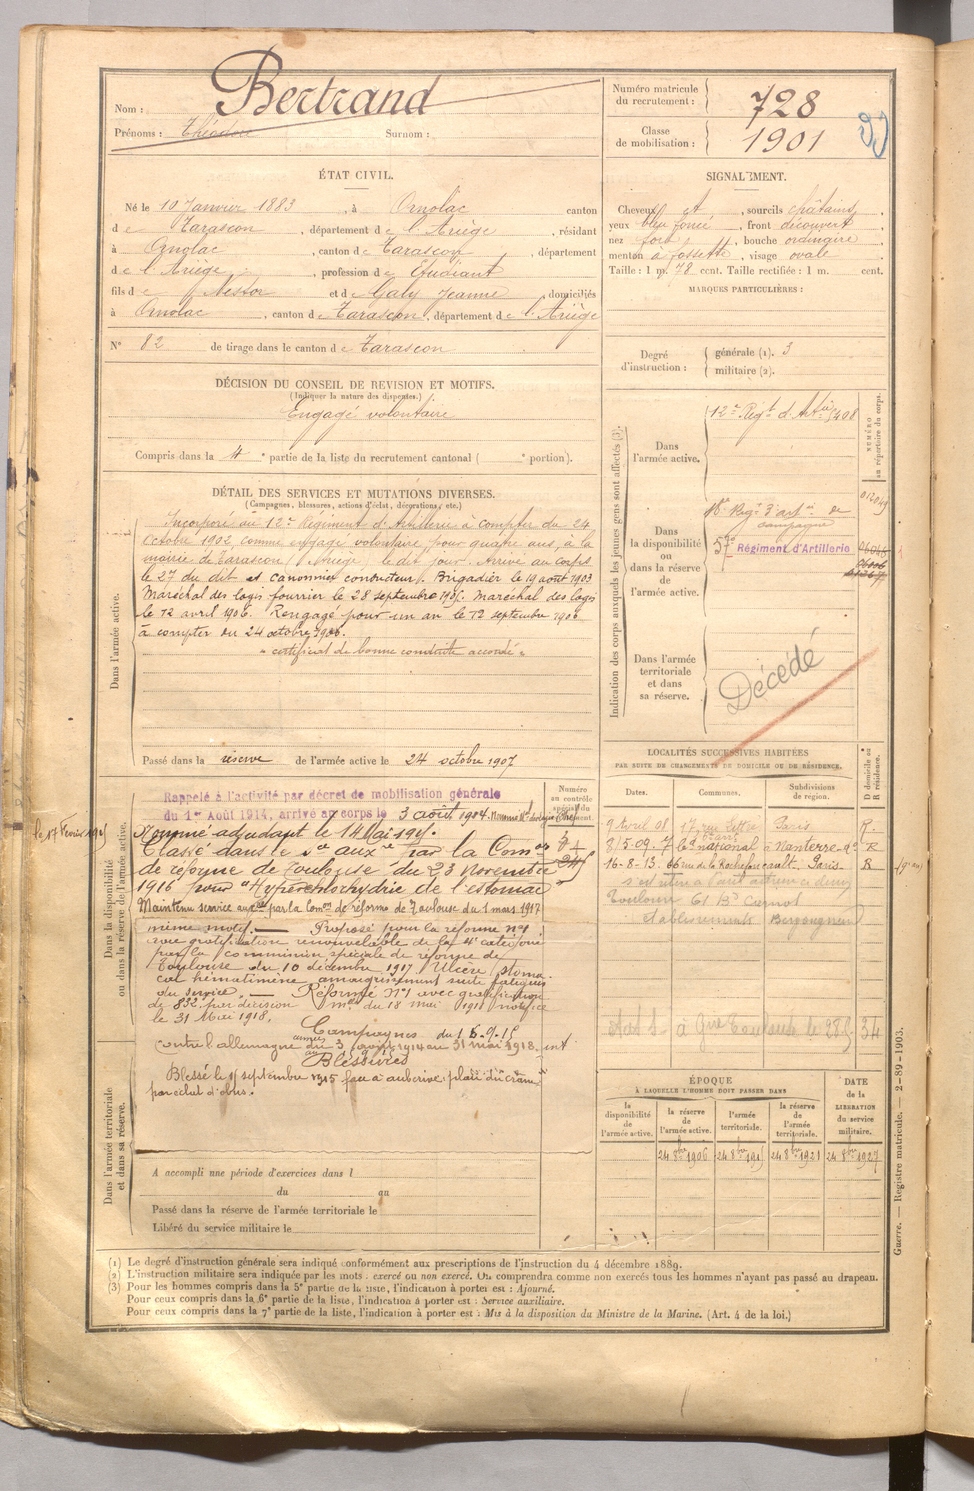 Nom : Bertrand
Prénoms : Théodore Surnom :
Numéro matricule du recrutement : 728
Classe de mobilisation : 1901
ÉTAT CIVIL.
Né le 10 Janvier 1883, à Ornolac canton
de Tarascon, département de l'Ariège, résidant
à Ornolac, canton de Tarascon, département
de l'Ariège, profession de Etudiant
fils de Nestor et de Galy Jeanne, domiciliés
à Ornolac, canton de Tarascon, département de l'Ariège
N° 82 de tirage dans le canton de Tarascon
SIGNALEMENT.
Cheveux et, sourcils châtains,
yeux bleu foncé, front découvert
nez fort, bouche ordinaire
menton à fossette, visage ovale
Taille : 1 m. 78 cent. Taille rectifiée : 1 m. cent.
MARQUES PARTICULIÈRES :
Degré d'instruction : générale (1). 3
militaire (2).
DÉCISION DU CONSEIL DE REVISION ET MOTIFS.
(Indiquer la nature des dispenses.)
Engagé volontaire
Compris dans la 4e partie de la liste du recrutement cantonal ( e portion).
DÉTAIL DES SERVICES ET MUTATIONS DIVERSES.
(Campagnes, blessures, actions d'éclat, décorations, etc.)
Dans l'armée active.
Incorporé au 12e Régiment d'Artillerie à compter du 24
octobre 1902 comme engagé volontaire pour quatre ans, à la
mairie de Tarascon (Ariège) le dit jour. Arrivé au corps
le 27 du dit et canonnier conducteur. Brigadier le 19 août 1903
Maréchal des logis fourrier le 28 septembre 1905. Maréchal des logis
le 12 avril 1906. Rengagé pour un an le 12 septembre 1906
à compter du 24 octobre 1906.
"certificat de bonne conduite accordé"
Passé dans la réserve de l'armée active le 24 octobre 1907
Indication des corps auxquels les jeunes gens sont affectés (3).
NUMÉRO au répertoire du corps.
Dans l'armée active.
12e Régt d'Artie
Dans la disponibilité ou dans la réserve de l'armée active.
Régt d'artie de campagne
57e Régiment d'Artillerie
Dans l'armée territoriale et dans sa réserve.
Décédé
Dans la disponibilité ou dans la réserve de l'armée active.
Numéro au contrôle spécial du recrutement.
Rappelé à l'activité par décret de mobilisation générale
du 1er Août 1914, arrivé au corps le 3 août 1914.
le 17 Février 1915
Nommé adjudant le 14 Mai 1915.
Classé dans le sce auxre par la Comon
de réforme de Toulouse du 23 novembre
1916 pour "Hyperchlorhydrie de l'estomac"
Maintenu service auxre par la Comon de réforme de Toulouse du 1 mars 1917
même motif. — Proposé pour la réforme n°1
avec gratification renouvelable de la 4e catégorie
par la commission spéciale de réforme de
Toulouse du 10 décembre 1917 Ulcère stoma-
cal hématémèse amaigrissement suite fatigues
du service. — Réformé N°1 avec gratification
de 832 f par décision mlle du 18 mai 1918 notifiée
le 31 Mai 1918.
Campagnes
contre l'allemagne du 3 août 1914 au 31 mai 1918.
Blessures
Blessé le septembre 1915 face à auberive
par éclat d'obus.
LOCALITÉS SUCCESSIVES HABITÉES
PAR SUITE DE CHANGEMENTS DE DOMICILE OU DE RÉSIDENCE.
D domicile ou R résidence.
Dates. Communes. Subdivisions de région.
9 Avril 08 17 rue Littré Paris R.
8/5.09. national à Nanterre R
16-8-13. 66 rue de la Rochefoucault. Paris R
Toulouse 61 Bd Carnot
établissements Bergougnan
à Toulouse
Dans l'armée territoriale et dans sa réserve.
A accompli une période d'exercices dans l
du au
Passé dans la réserve de l'armée territoriale le
Libéré du service militaire le
ÉPOQUE
À LAQUELLE L'HOMME DOIT PASSER DANS
DATE de la LIBÉRATION du service militaire.
la disponibilité de l'armée active.
la réserve de l'armée active.
l'armée territoriale.
la réserve de l'armée territoriale.
24 8bre 1906 24 8bre 1915 24 8bre 1921 24 8bre 1927
Guerre. — Registre matricule. — 2-89-1903.
(1) Le degré d'instruction générale sera indiqué conformément aux prescriptions de l'instruction du 4 décembre 1889.
(2) L'instruction militaire sera indiquée par les mots : exercé ou non exercé. On comprendra comme non exercés tous les hommes n'ayant pas passé au drapeau.
(3) Pour les hommes compris dans la 5e partie de la liste, l'indication à porter est : Ajourné.
Pour ceux compris dans la 6e partie de la liste, l'indication à porter est : Service auxiliaire.
Pour ceux compris dans la 7e partie de la liste, l'indication à porter est : Mis à la disposition du Ministre de la Marine. (Art. 4 de la loi.)